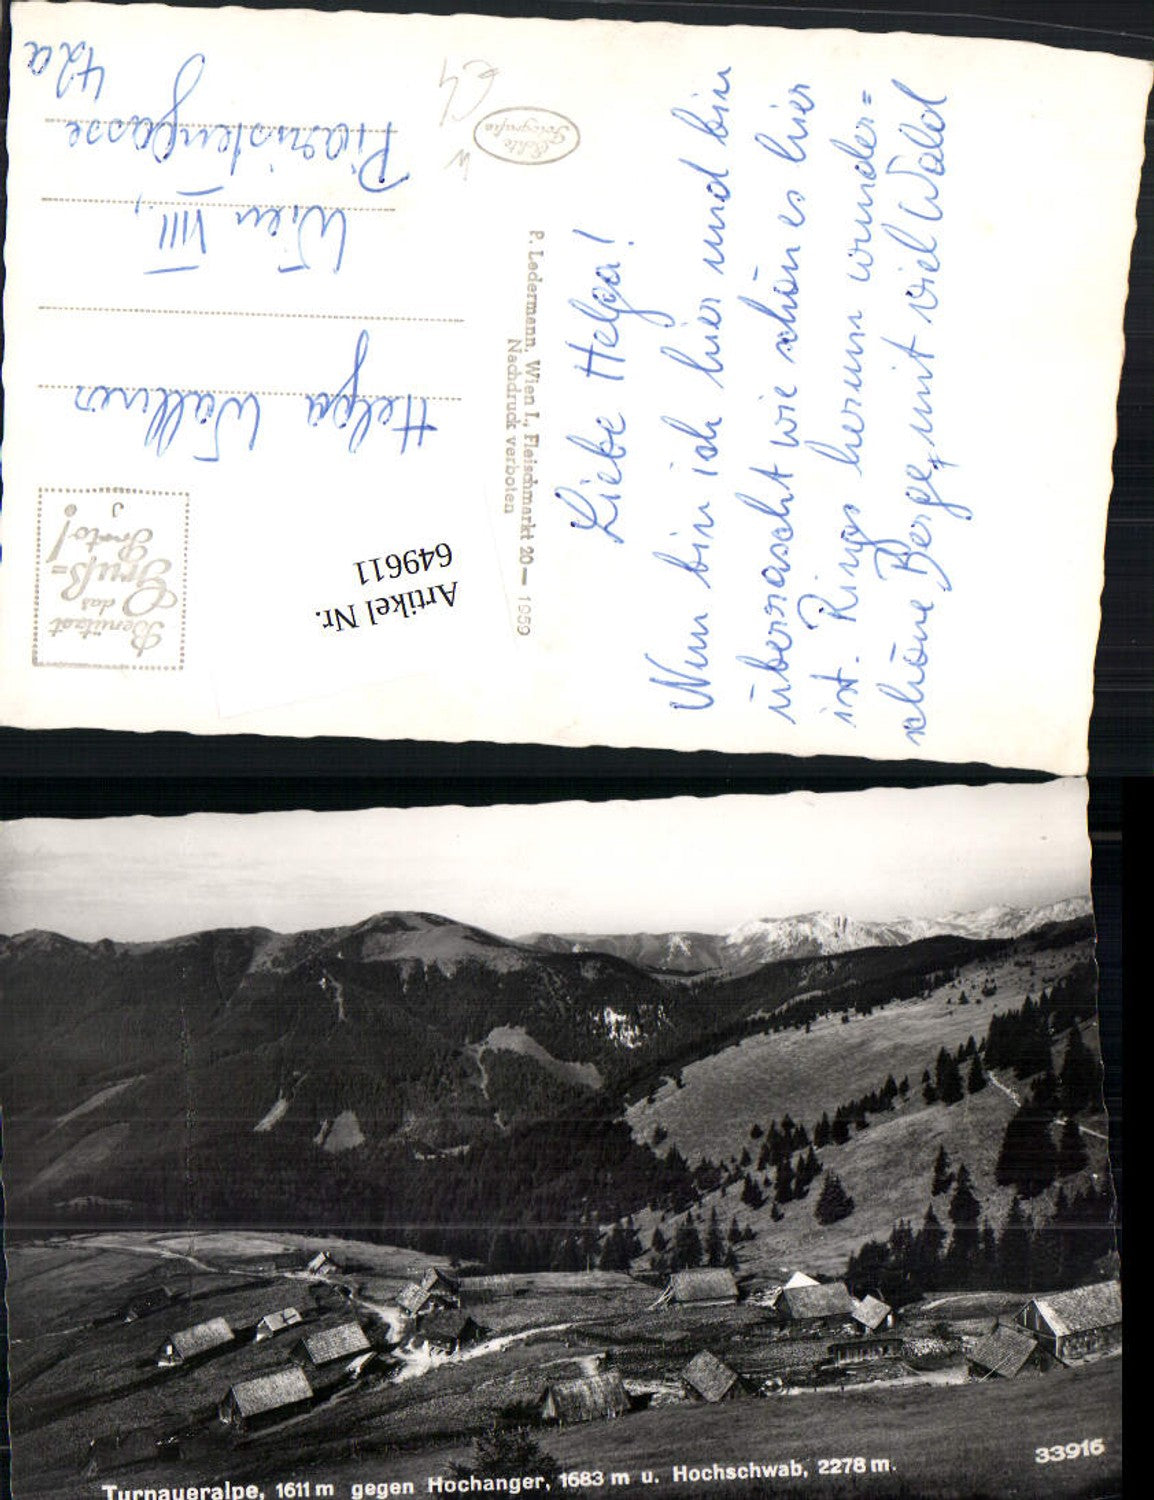 Liebe Helga!
Nun bin ich hier und bin
überrascht wie schön es hier
ist. Rings herum wunder=
schöne Berge, mit viel Wald
Echte
Fotografie
P. Ledermann, Wien I., Fleischmarkt 20 — 1959
Nachdruck verboten
Benützt
das
Gruß=
Porto!
Artikel Nr.
649611
Helga Wallner
Wien VIII.,
Piaristengasse
42a
Turnaueralpe, 1611 m gegen Hochanger, 1683 m u. Hochschwab, 2278 m.
33916